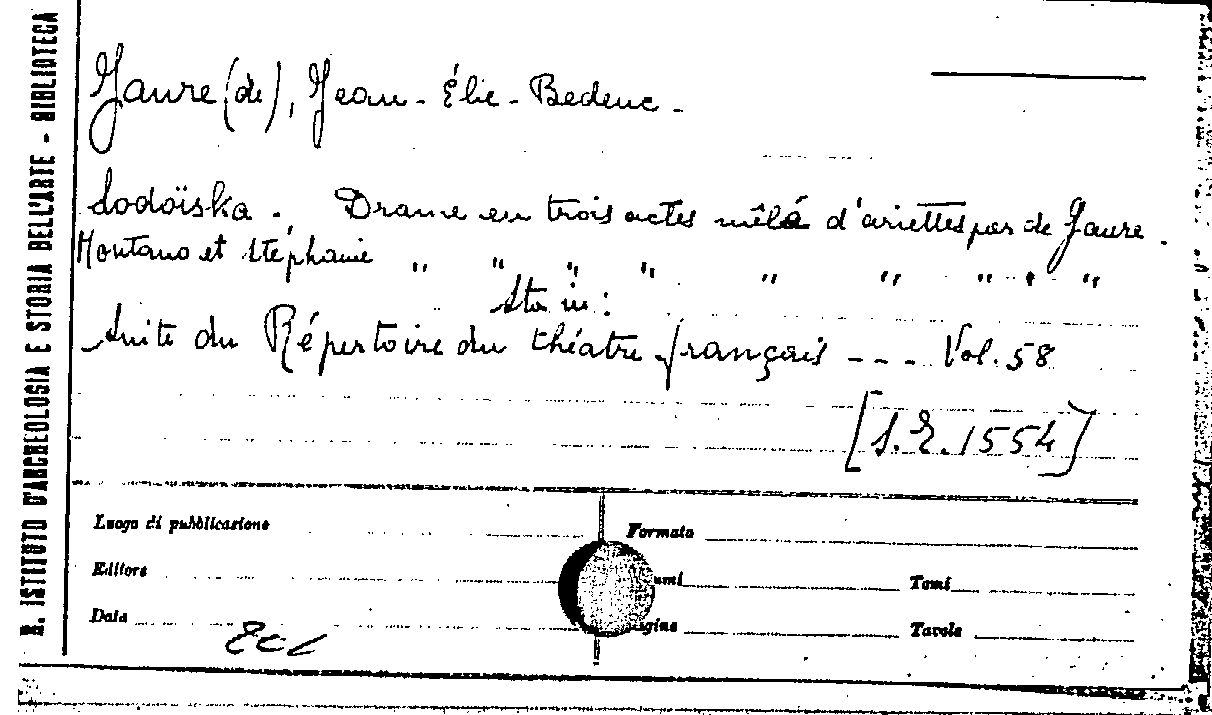 R. ISTITUTO D'ARCHEOLOGIA E STORIA DELL'ARTE - BIBLIOTECA
Jaure (de), Jean - Élie - Bedenc -
Lodoïska - Drame en trois actes mêlé d'ariettes par de Jaure.
Montano et Stéphanie " " " " " " " "
Sta in:
Suite du Répertoire du théatre français - - - Vol. 58
[S.E. 1554]
Luogo di pubblicazione Formato
Editore umi Tomi
Data gine Tavole